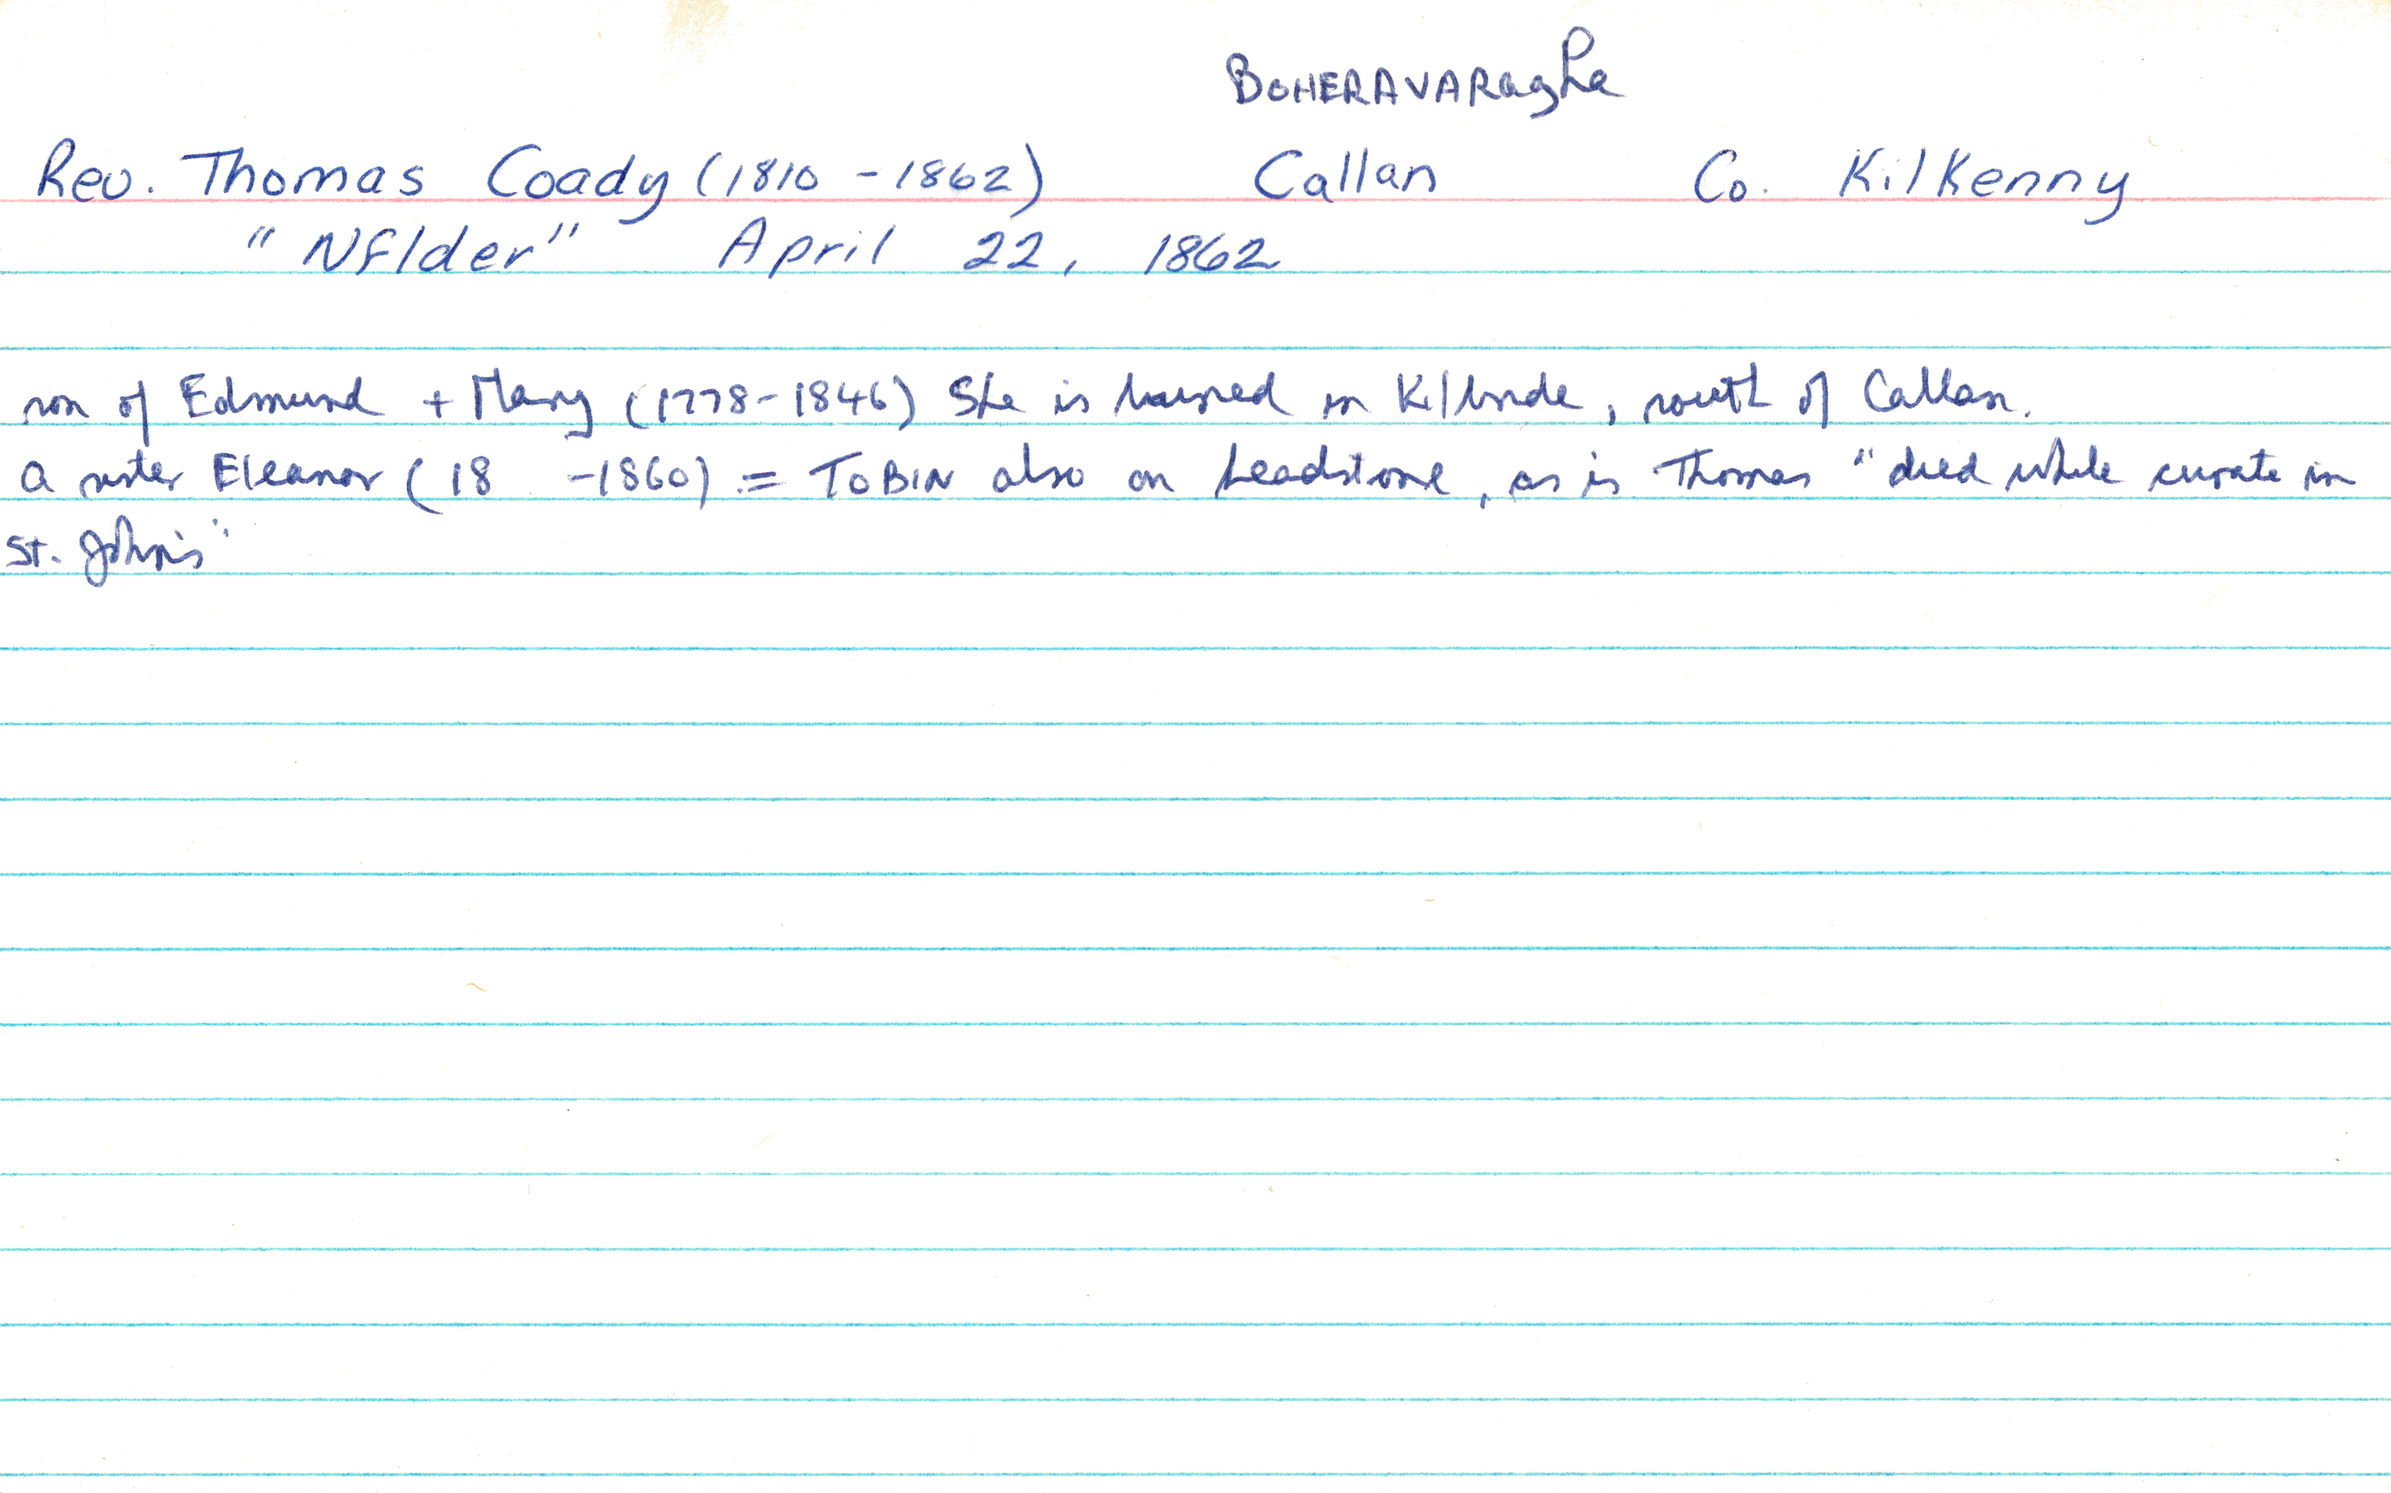 BOHERAVARagha
Rev. Thomas Coady (1810 - 1862) Callan Co. Kilkenny
"Nflder" April 22, 1862
son of Edmund + Mary (1778-1846) She is buried in Kilbride, south of Callan.
a sister Eleanor (18 -1860) = TOBIN also on headstone, as is Thomas "died while curate in
St. John's"